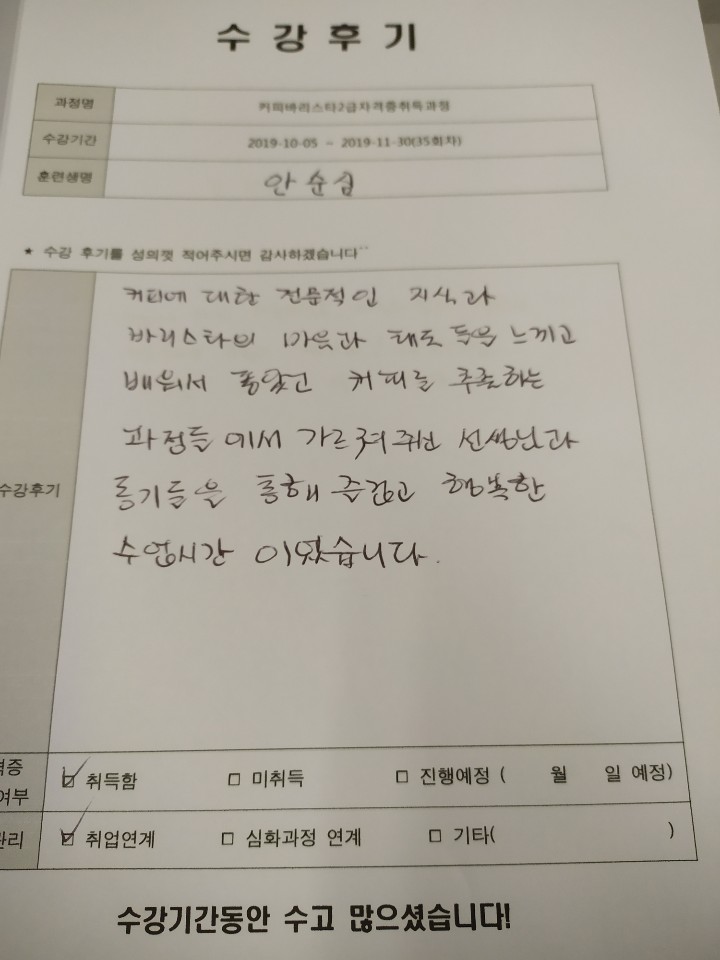 수강후기
과정명 커피바리스타2급자격증취득과정
수강기간 2019-10-05 ~ 2019-11-30(35회차)
훈련생명 안순섭
★ 수강 후기를 성의껏 적어주시면 감사하겠습니다^^
커피에 대한 전문적인 지식과
바리스타의 마음과 태도 등을 느끼고
배워서 좋았고 커피를 추출하는
과정들에서 가르쳐주신 선생님과
수강후기
동기들을 통해 즐겁고 행복한
수업시간 이였습니다.
격증
여부
☑ 취득함 □ 미취득 □ 진행예정 ( 월 일 예정)
관리 ☑ 취업연계 □ 심화과정 연계 □ 기타( )
수강기간동안 수고 많으셨습니다!